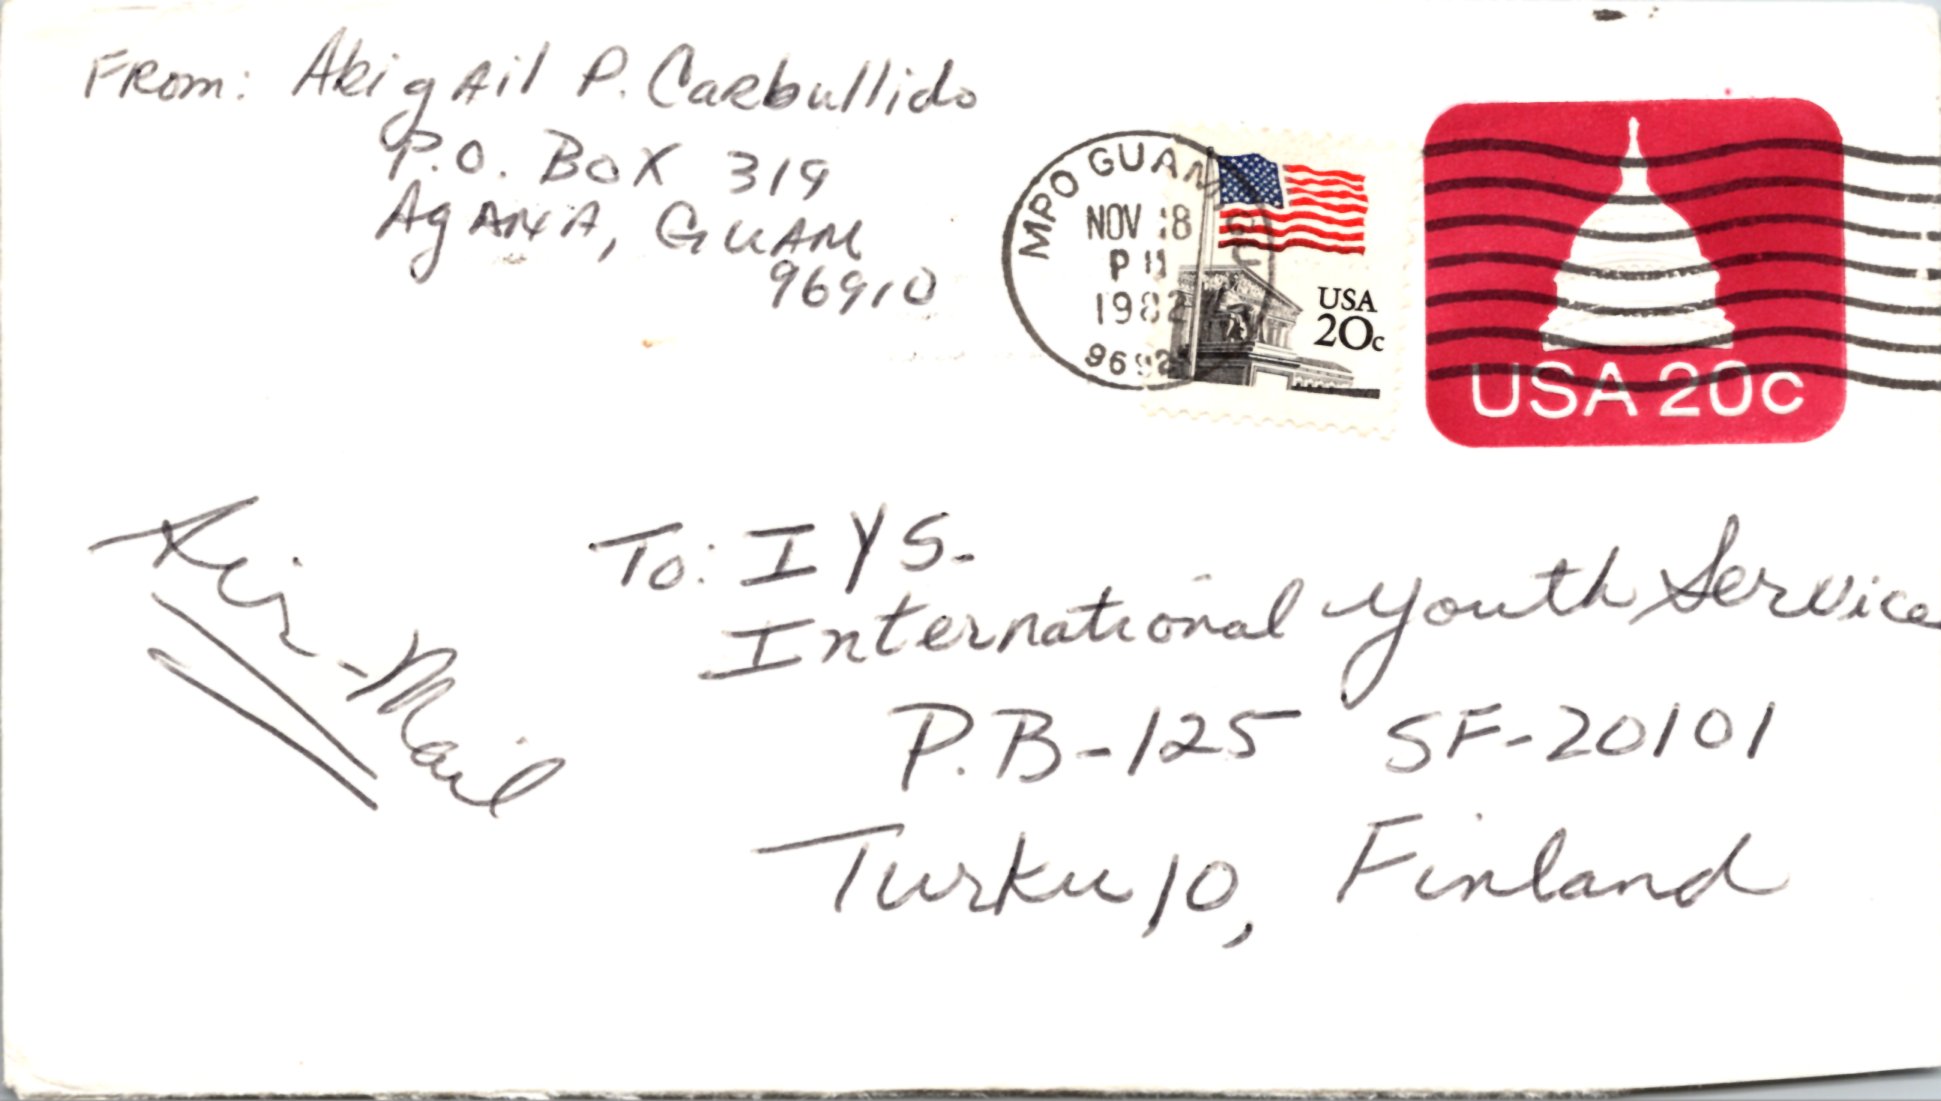 From: Abigail P. Carbullido
P.O. Box 319
Agana, Guam
96910
MPO GUAM
NOV 18
PM
1982
USA
20c
USA 20c
Air-Mail
To: IYS-
International Youth Service
P.B-125 SF-20101
Turku 10, Finland